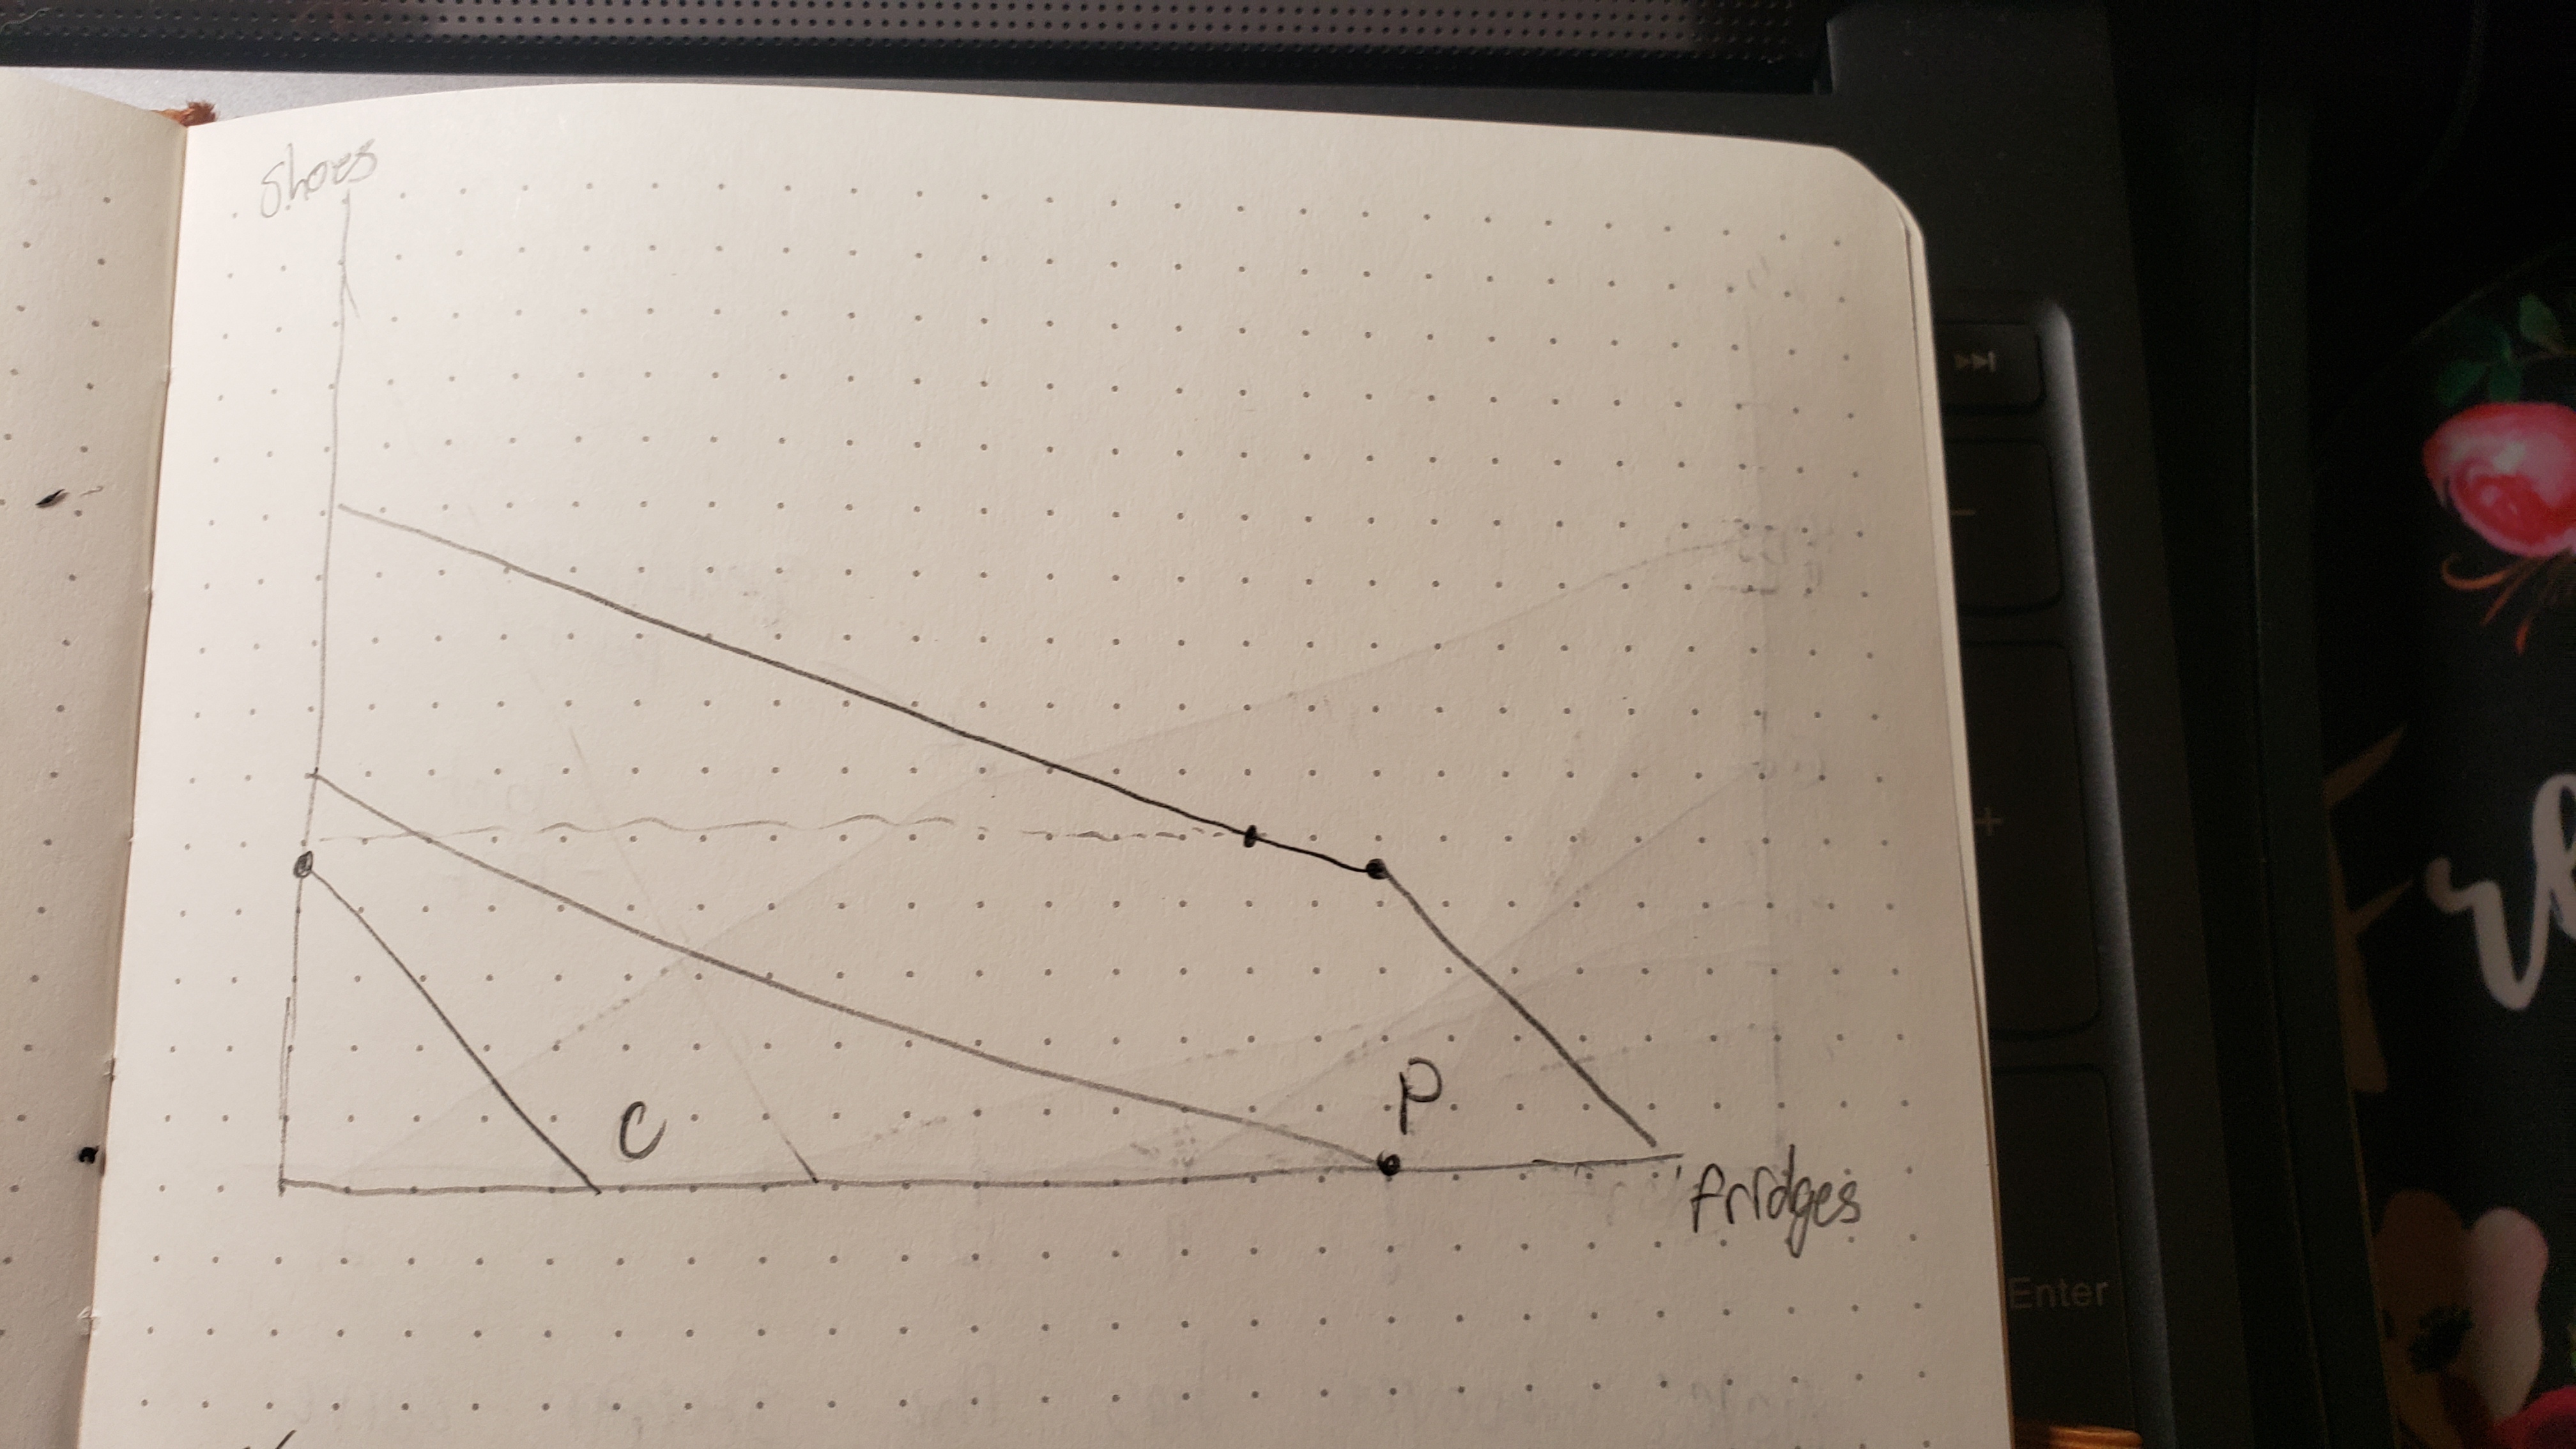 Shoes
C
P
Fridges
Enter
+
-